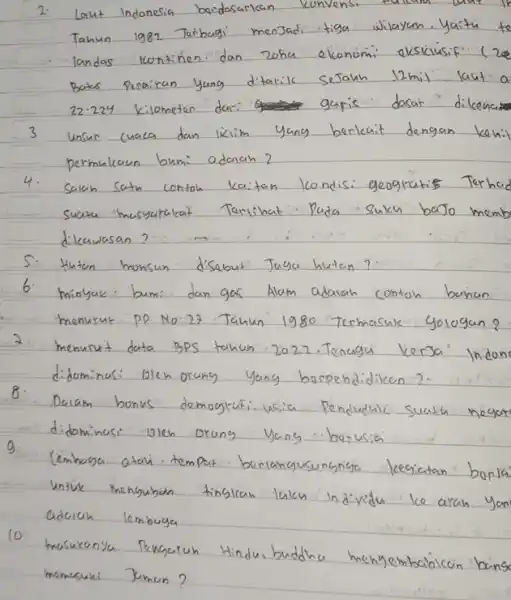 2. Laut Indonesia berdasarkan konvensi
Tahun 1982 Terbagi menjadi tiga wilayah, yaitu te
landas kontinen dan zona ekonomi eksklusif (ze
Batas Perairan yang ditarik sejauh 12 mil laut a
22.224 kilometer dari garis dasar dikenal
3 unsur cuaca dan iklim yang berkait dengan kon
permukaan bumi adalah ?
4. Salah satu contoh kaitan kondisi geografis Terhad
suatu masyarakat Terlihat Pada suku bajo memb
dikawasan ?
5. Hutan monsun disebut Juga hutan ?
6 minyak bumi dan gas Alam adalah contoh bahan
menurut PP No 27 Tahun 1980 Termasuk golongan ?
7 menurut data BPS tahun 2022. Tenaga kerja Indon
didominasi oleh orang yang berpendidikan ?
8. Dalam bonus demografi usia Penduduk suatu negar
didominasi oleh orang yang berusia
9 lembaga atau tempat berlangsungnya kegiatan bagia
untuk mengubah tingkah laku individu ke arah yan
adalah lembaga
10 masuknya Pengaruh Hindu, buddha mengembabkan bangs
memasuki Jaman ?